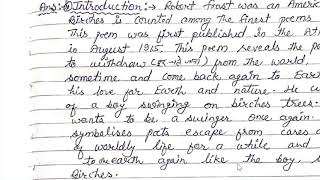 Ans:- ① Introduction :- Robert Frost was an America
Birches is counted among the finest poems
This poem was first published in the At
in August 1915. This poem reveals the po
to withdraw ( ) from the world,
sometime and come back again to Earth
his love for Earth and nature. He w
of a boy swinging on birches trees.
wants to be a swinger once again.
symbolises poets escape from cares a
of worldly life for a while and
to earth again like the boy, s
Birches.